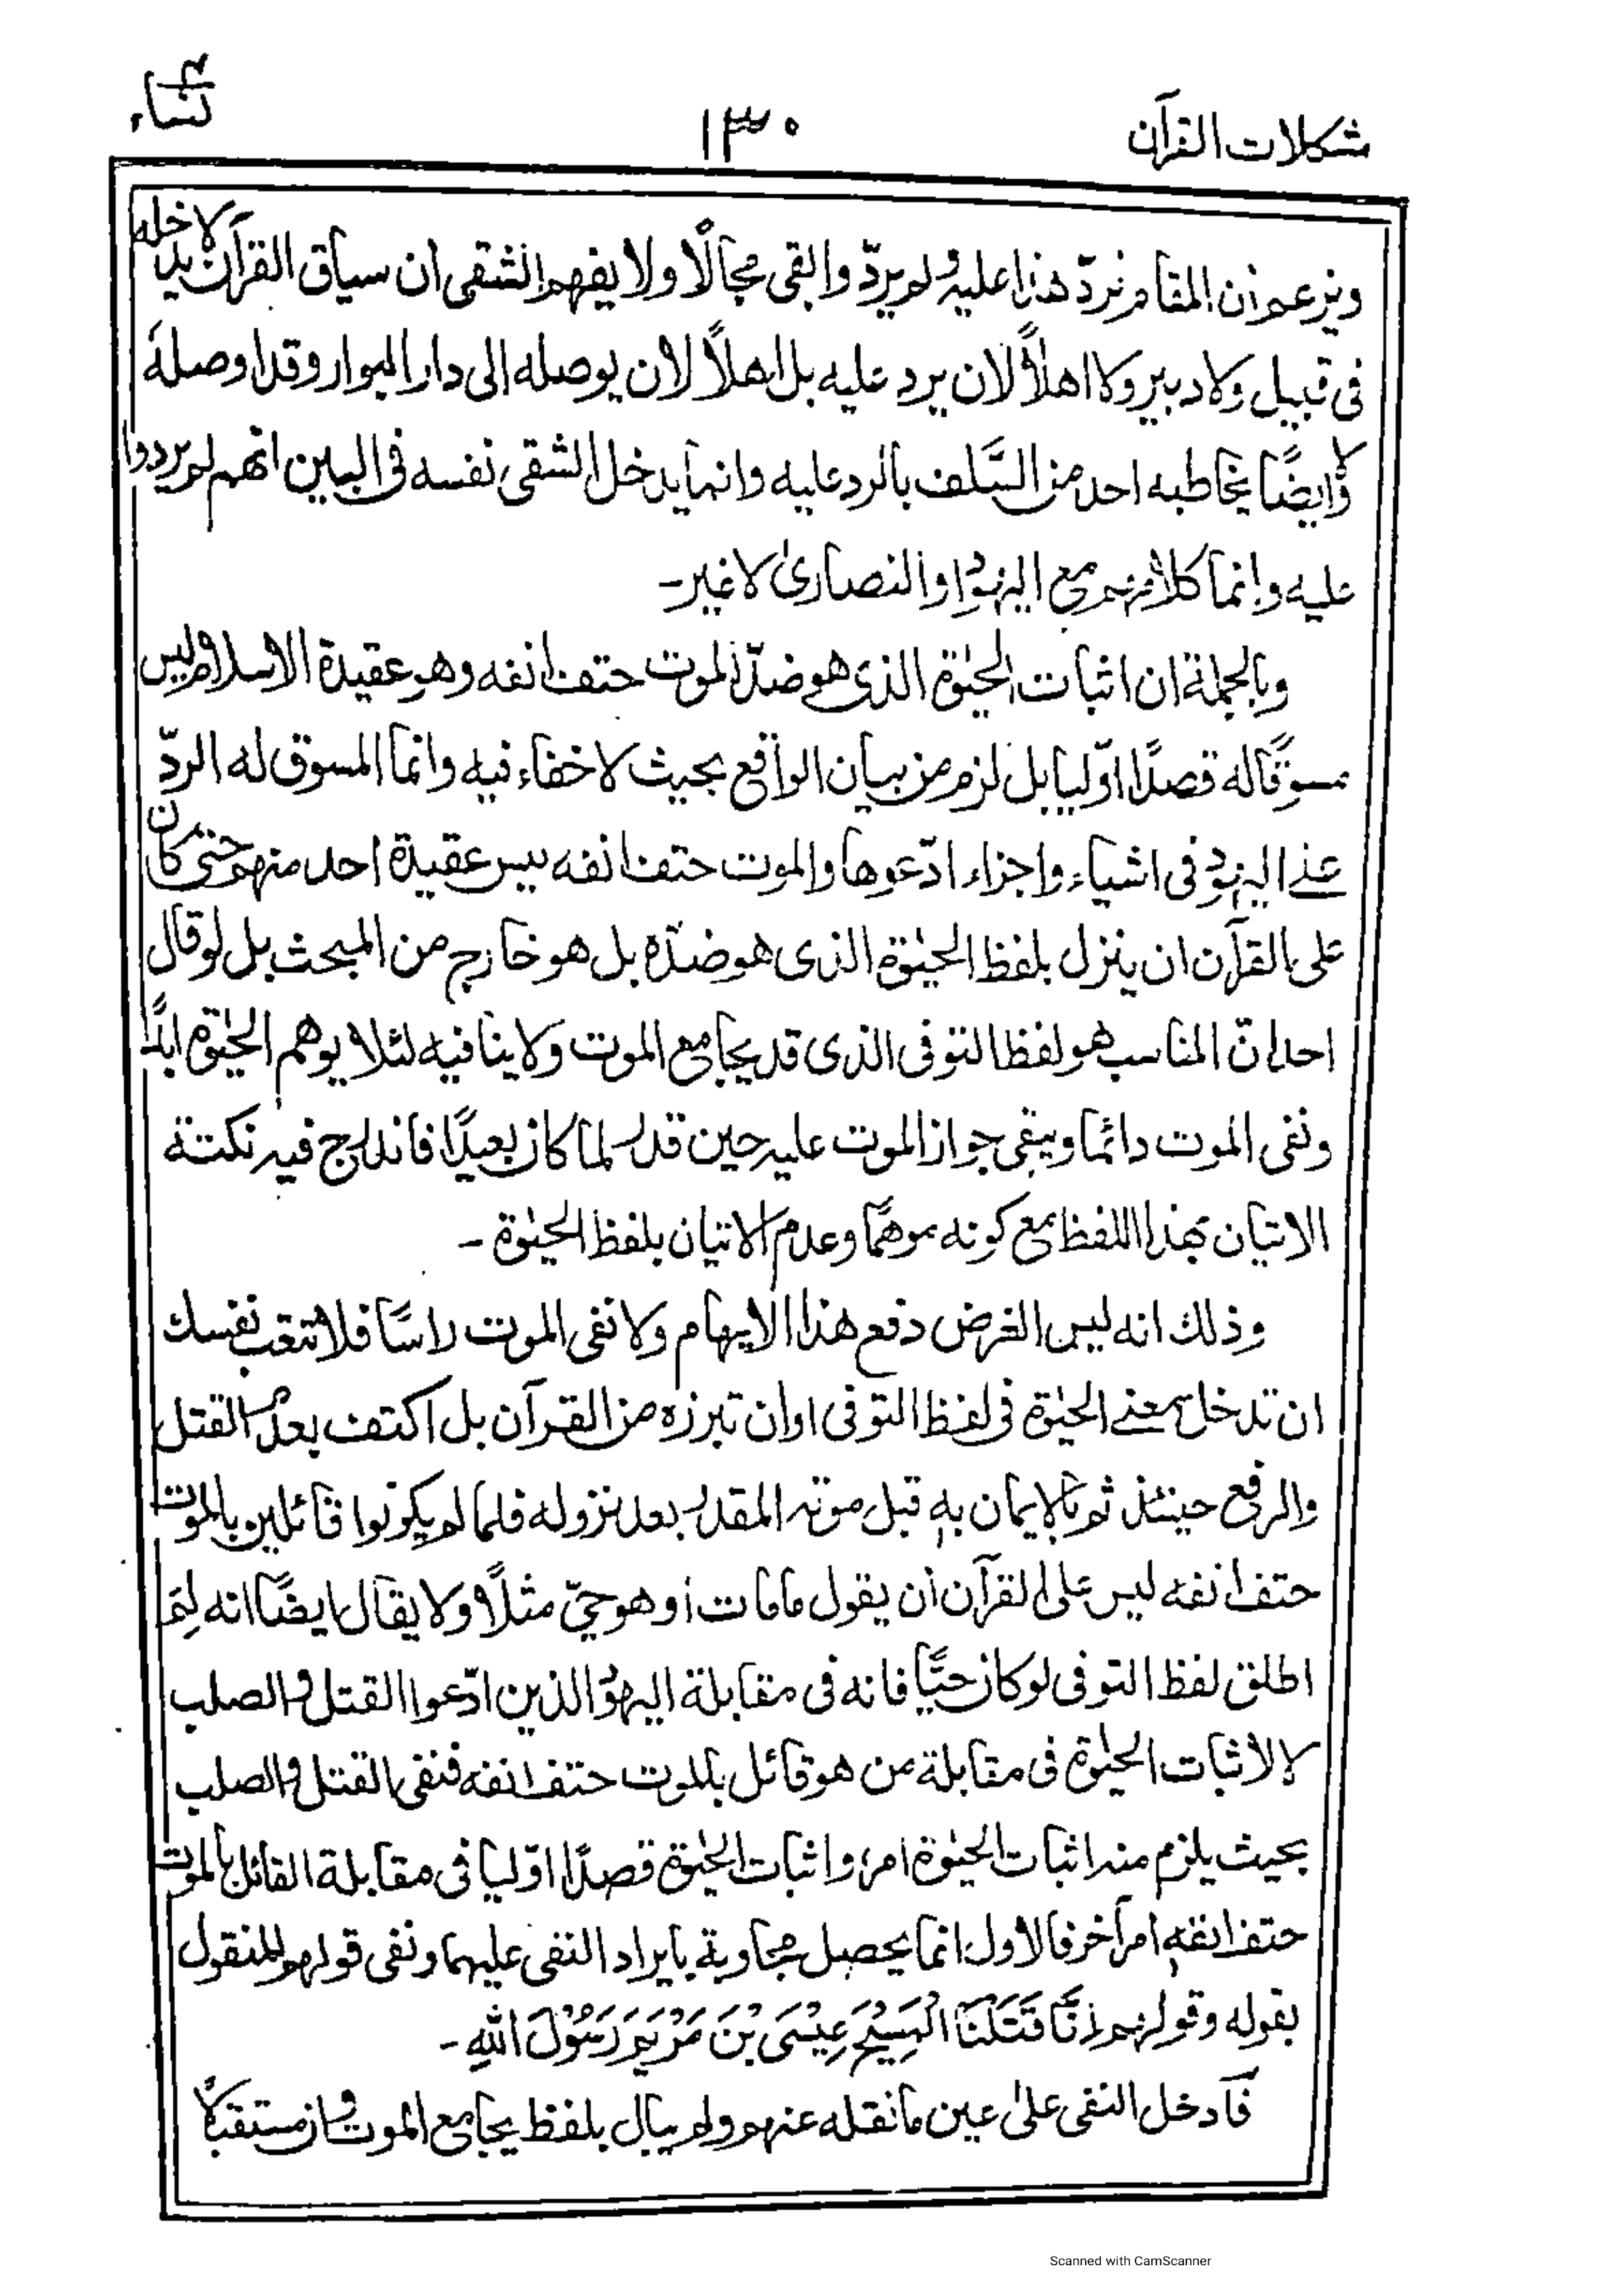 نساء
١٣٠
شكلات القرآن
ويزعم ان المقام نردّ هذا عليه ولم يردّ وابقى مجالًا ولا يفهم الشقى ان سياق القرآن لا يدخله
فى قبيل ولا دبير وكا اهلاً لان يرد عليه بل اهلاً لان يوصله الى دار البوار وقد اوصله
و ايضًا لا يخاطبه احد من السَّلف بالرد عليه وانما يدخل الشقى نفسه فى البين انهم لم يردوا
عليه وانما كلامهم مع اليهود او النصارىٰ لا غير۔
وبالجملة ان اثبات الحيٰوة الذى هو ضدّ الموت حتف انفه وهو عقيدة الاسلام ليس
مسوقًا له قصدًا اوّليا بل لزم من بيان الواقع بحيث لا خفاء فيه وانما المسوق له الردّ
على اليهود فى اشياء واجزاء ادّعوها والموت حتف انفه ليس عقيدة احد منهم حتى كان
على القرآن ان ينزل بلفظ الحيٰوة الذى هو ضدّه بل هو خارج من المبحث بل لو قال
احد انّ المناسب هو لفظ التوفى الذى قد يجامع الموت ولا ينافيه لئلا يوهم الحيٰوة ابدًا
ونفى الموت دائما ويبقى جواز الموت عليه حين قدر لما كان بعيدًا فاندرج فيه نكتة
الاتيان بهذا اللفظ مع كونه موهمًا وعدم الاتيان بلفظ الحيٰوة ۔
وذلك انه ليس الغرض دفع هذا الايهام ولا نفى الموت راسًا فلا تتعب نفسك
ان تدخل معنى الحيٰوة فى لفظ التوفى او ان تبرزه من القرآن بل اكتف بعدم القتل
والرفع حينئذ ثم بالايمان به قبل موته المقدر بعد نزوله فلما لم يكونوا قائلين بالموت
حتف انفه ليس على القرآن ان يقول ما مات او هو حىّ مثلًا ولا يقال ايضًا انه لِمَ
اطلق لفظ التوفى لو كان حيًّا فانه فى مقابلة اليهود الذين ادّعوا القتل والصلب
لا لاثبات الحيٰوة فى مقابلة من هو قائل بالموت حتف انفه فنفى القتل والصلب
بحيث يلزم منه اثبات الحيٰوة امر، واثبات الحيٰوة قصدًا اوّليا فى مقابلة القائل بالموت
حتف انفه امر آخر فالاول انما يحصل مجاوبة بايراد النفى عليهما ونفى قولهم المنقول
بقوله وقولهم اِنَّا قَتَلْنَا الْمَسِيْحَ عِيْسَى بْنَ مَرْيَمَ رَسُوْلَ اللهِ ۔
فادخل النفى علىٰ عين ما نقله عنهم ولم يبال بلفظ يجامع الموت وان مستقبلًا
Scanned with CamScanner